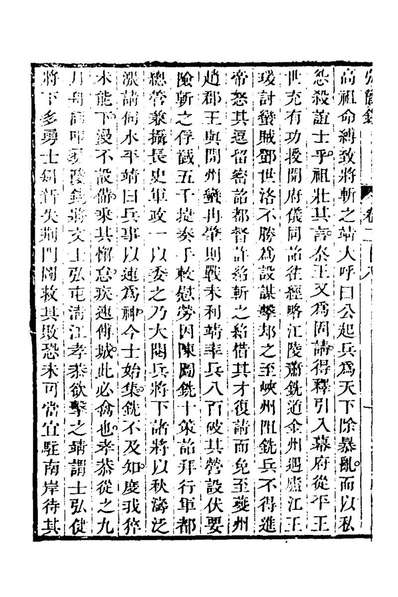 簡錄 卷二
高祖命縛致將斬之靖大呼曰公起兵爲天下除暴亂而以私
怨殺誼士乎祖壯其言秦王又爲固請得釋引入幕府從平王
世充有功授開府儀同詔往經略江陵蕭銑道金州遇廬江王
瑗討蠻賊鄧世洛不勝爲設謀擊却之至峽州阻銑兵不得進
帝怒其逗留詔都督許紹斬之紹惜其才復請而免至夔州
趙郡王與開州蠻冉肇則戰未利靖率兵八百破其營設伏要
險斬之俘馘五千捷奏手敕慰勞因陳圖銑十策詔拜行軍都
總管兼攝長史軍政一以委之乃大閱兵將下諸將以秋潦泛
漲請俟水平靖曰兵事以速爲神今士始集銑不及知度我猝
未能下漫不設備乘其懈怠疾速傅城此必禽也孝恭從之九
月舟師叩夷陵銑將文士弘屯清江孝恭欲擊之靖謂士弘健
將下多勇士銑新失荊門救其敗恐未可當宜駐南岸待其